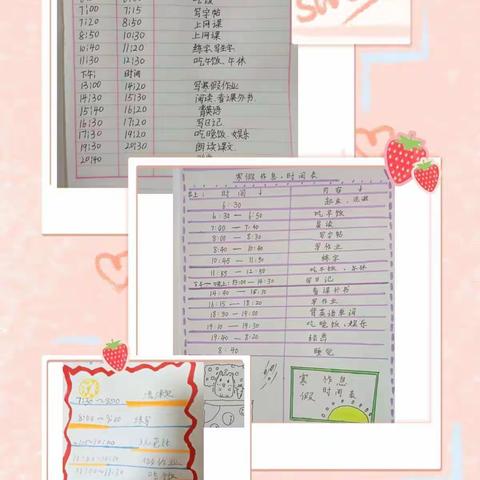 7:00 7:15 写字帖
7:20 8:50 上网课
8:50 10:30 上网课
10:40 11:20 练字、写生字
11:30 12:30 吃午饭、午休
下午: 时间
13:00 14:20 写寒假作业
14:30 15:30 阅读、看课外书
15:40 16:20 背英语
16:30 17:20 写日记
17:30 19:20 吃晚饭、娱乐
19:30 20:30 朗读课文
20:40
寒假作息时间表
时间 内容
6:30 起床、洗漱
6:30 — 6:50 吃早饭
7:00 — 7:40 晨读
8:00 — 8:30 写字帖
8:40 — 10:40 写作业
10:45 — 11:30 练字
11:35 — 12:30 吃午饭、午休
13:00 — 14:30 写日记
14:40 — 16:10 看课外书
16:15 — 18:20 写作业
18:30 — 19:00 背英语单词
19:10 — 19:30 吃晚饴、娱乐
19:40 — 8:20
8:40 睡觉
寒假作息时间表
7:30～8:00
8:00～9:00 练字